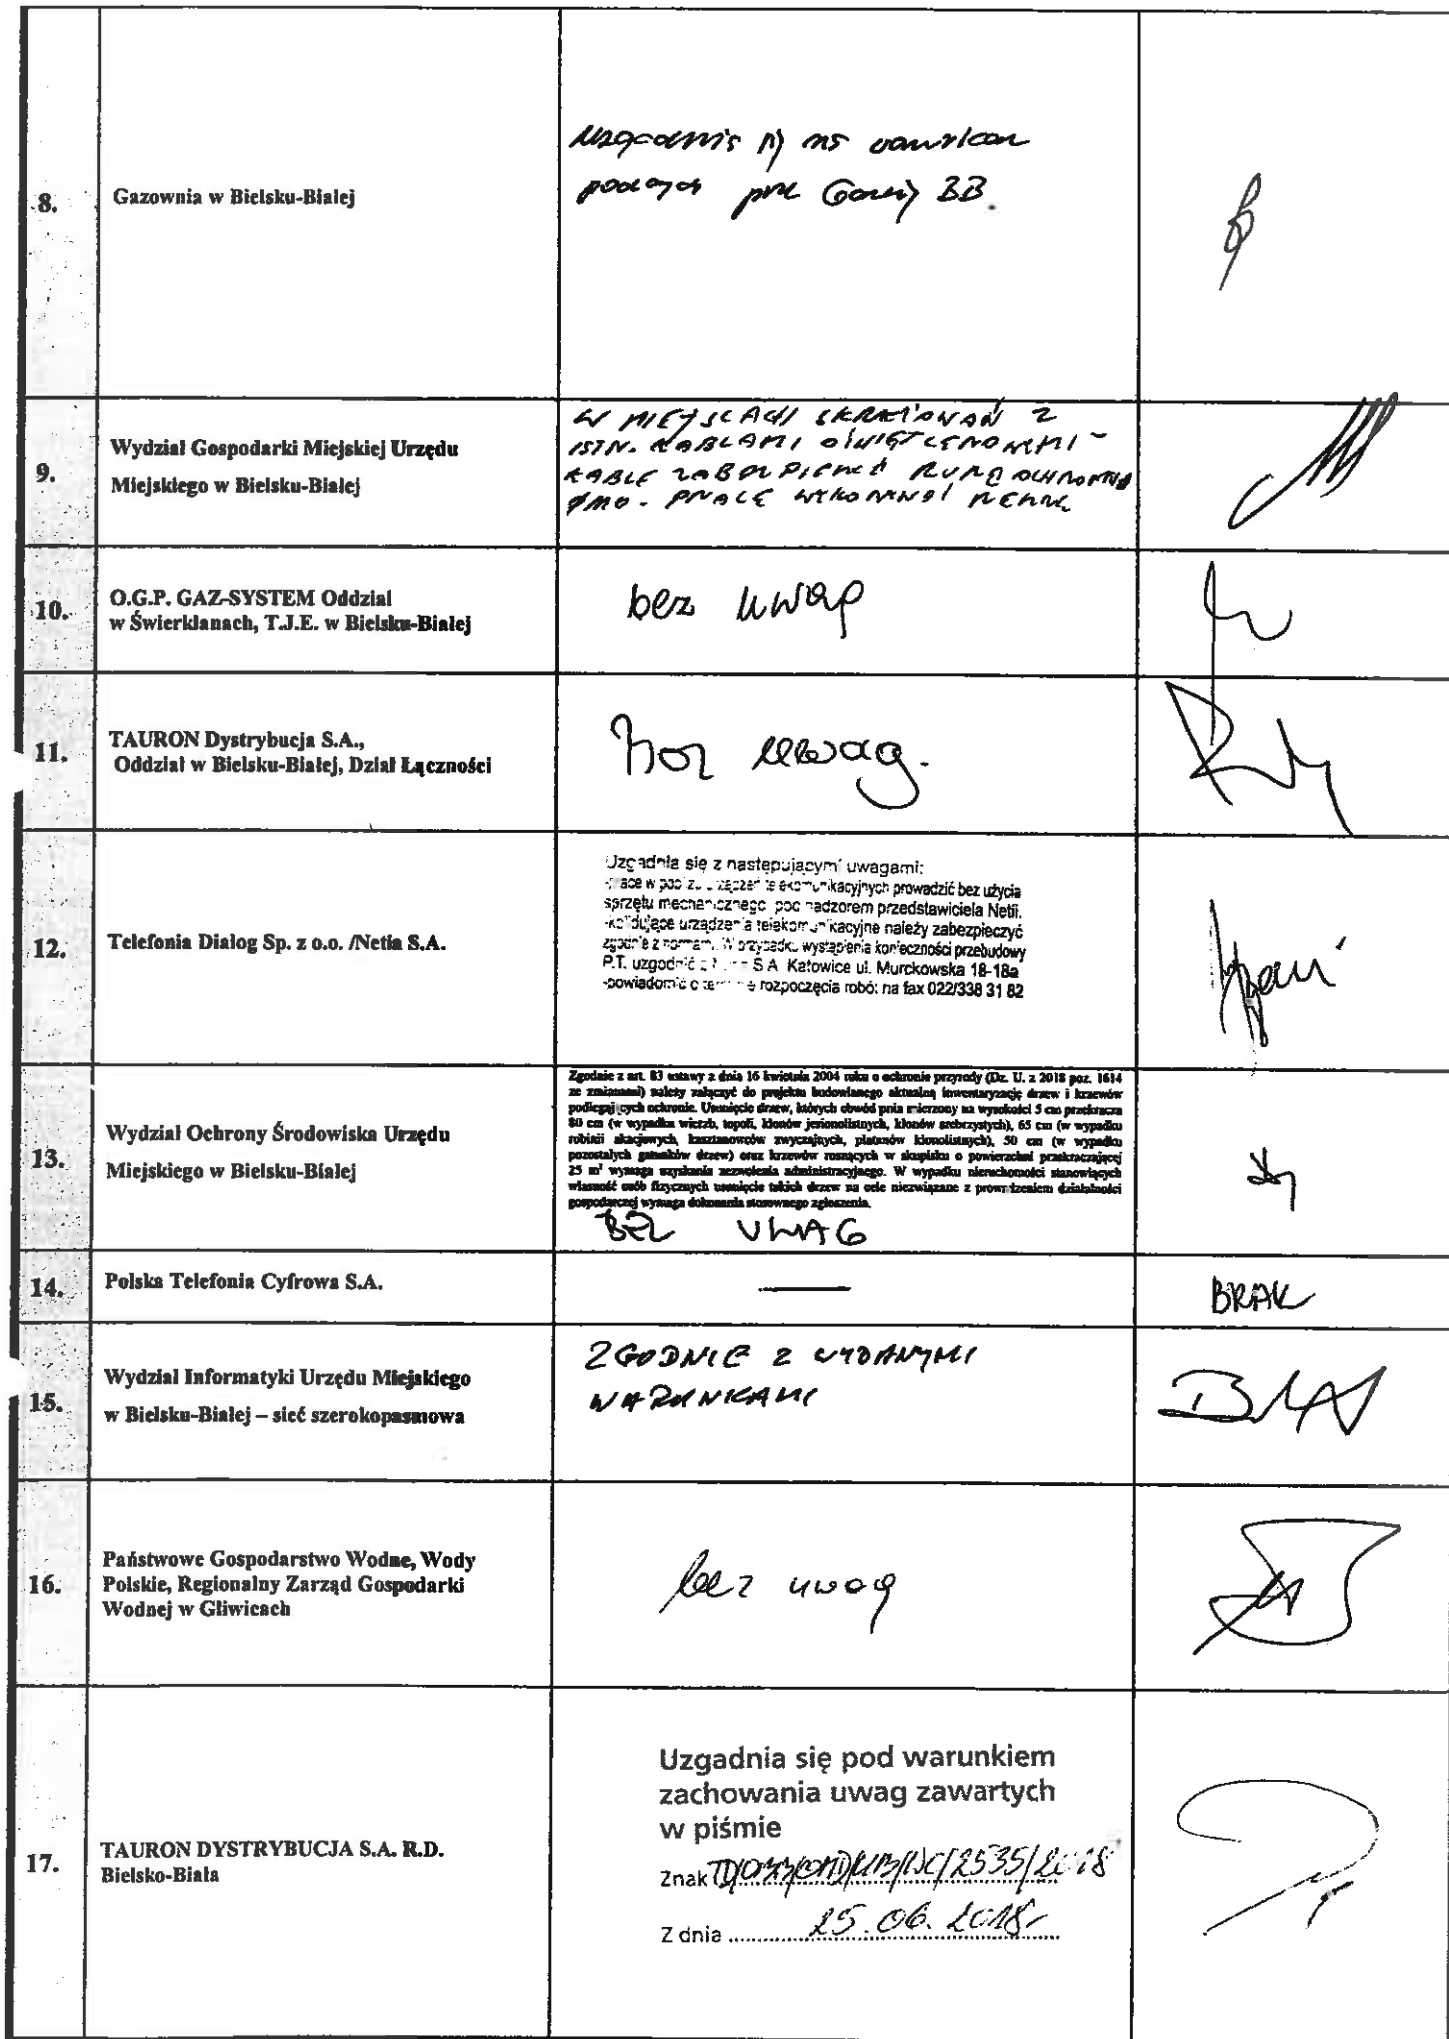 8.
Gazownia w Bielsku-Białej
BB.
9.
Wydział Gospodarki Miejskiej Urzędu
Miejskiego w Bielsku-Białej
W MIEJSCACH SKRZYŻOWAŃ Z
ISTN. KABLAMI OŚWIETLENIOWYMI -
KABLE ZABEZPIECZYĆ RURĄ OCHRONNĄ
PRACE WYKONYWAĆ
10.
O.G.P. GAZ-SYSTEM Oddział
w Świerklanach, T.J.E. w Bielsku-Białej
bez uwag
11.
TAURON Dystrybucja S.A.,
Oddział w Bielsku-Białej, Dział Łączności
bez uwag.
12.
Telefonia Dialog Sp. z o.o. /Netia S.A.
Uzgadnia się z następującymi uwagami:
-prace w pobliżu urządzeń telekomunikacyjnych prowadzić bez użycia
sprzętu mechanicznego pod nadzorem przedstawiciela Netii.
-kolidujące urządzenia telekomunikacyjne należy zabezpieczyć
zgodnie z normami. W przypadku wystąpienia konieczności przebudowy
P.T. uzgodnić z S.A. Katowice ul. Murckowska 18-18a
-powiadomić o terminie rozpoczęcia robót na fax 022/338 31 82
13.
Wydział Ochrony Środowiska Urzędu
Miejskiego w Bielsku-Białej
Zgodnie z art. 83 ustawy z dnia 16 kwietnia 2004 roku o ochronie przyrody (Dz. U. z 2018 poz. 1614
ze zmianami) należy załączyć do projektu budowlanego aktualną inwentaryzację drzew i krzewów
podlegających ochronie. Usunięcie drzew, których obwód pnia mierzony na wysokości 5 cm przekracza
80 cm (w wypadku wierzb, topoli, klonów jesionolistnych, klonów srebrzystych), 65 cm (w wypadku
robinii akacjowych, kasztanowców zwyczajnych, platanów klonolistnych), 50 cm (w wypadku
pozostałych gatunków drzew) oraz krzewów rosnących w skupisku o powierzchni przekraczającej
25 m² wymaga uzyskania zezwolenia administracyjnego. W wypadku nieruchomości stanowiących
własność osób fizycznych usunięcie takich drzew na cele niezwiązane z prowadzeniem działalności
gospodarczej wymaga dokonania stosownego zgłoszenia.
BEZ UWAG
14.
Polska Telefonia Cyfrowa S.A.
—
BRAK
15.
Wydział Informatyki Urzędu Miejskiego
w Bielsku-Białej – sieć szerokopasmowa
ZGODNIE Z WYDANYMI
WARUNKAMI
16.
Państwowe Gospodarstwo Wodne, Wody
Polskie, Regionalny Zarząd Gospodarki
Wodnej w Gliwicach
bez uwag
17.
TAURON DYSTRYBUCJA S.A. R.D.
Bielsko-Biała
Uzgadnia się pod warunkiem
zachowania uwag zawartych
w piśmie
Znak /2535/2018
Z dnia 25.06.2018